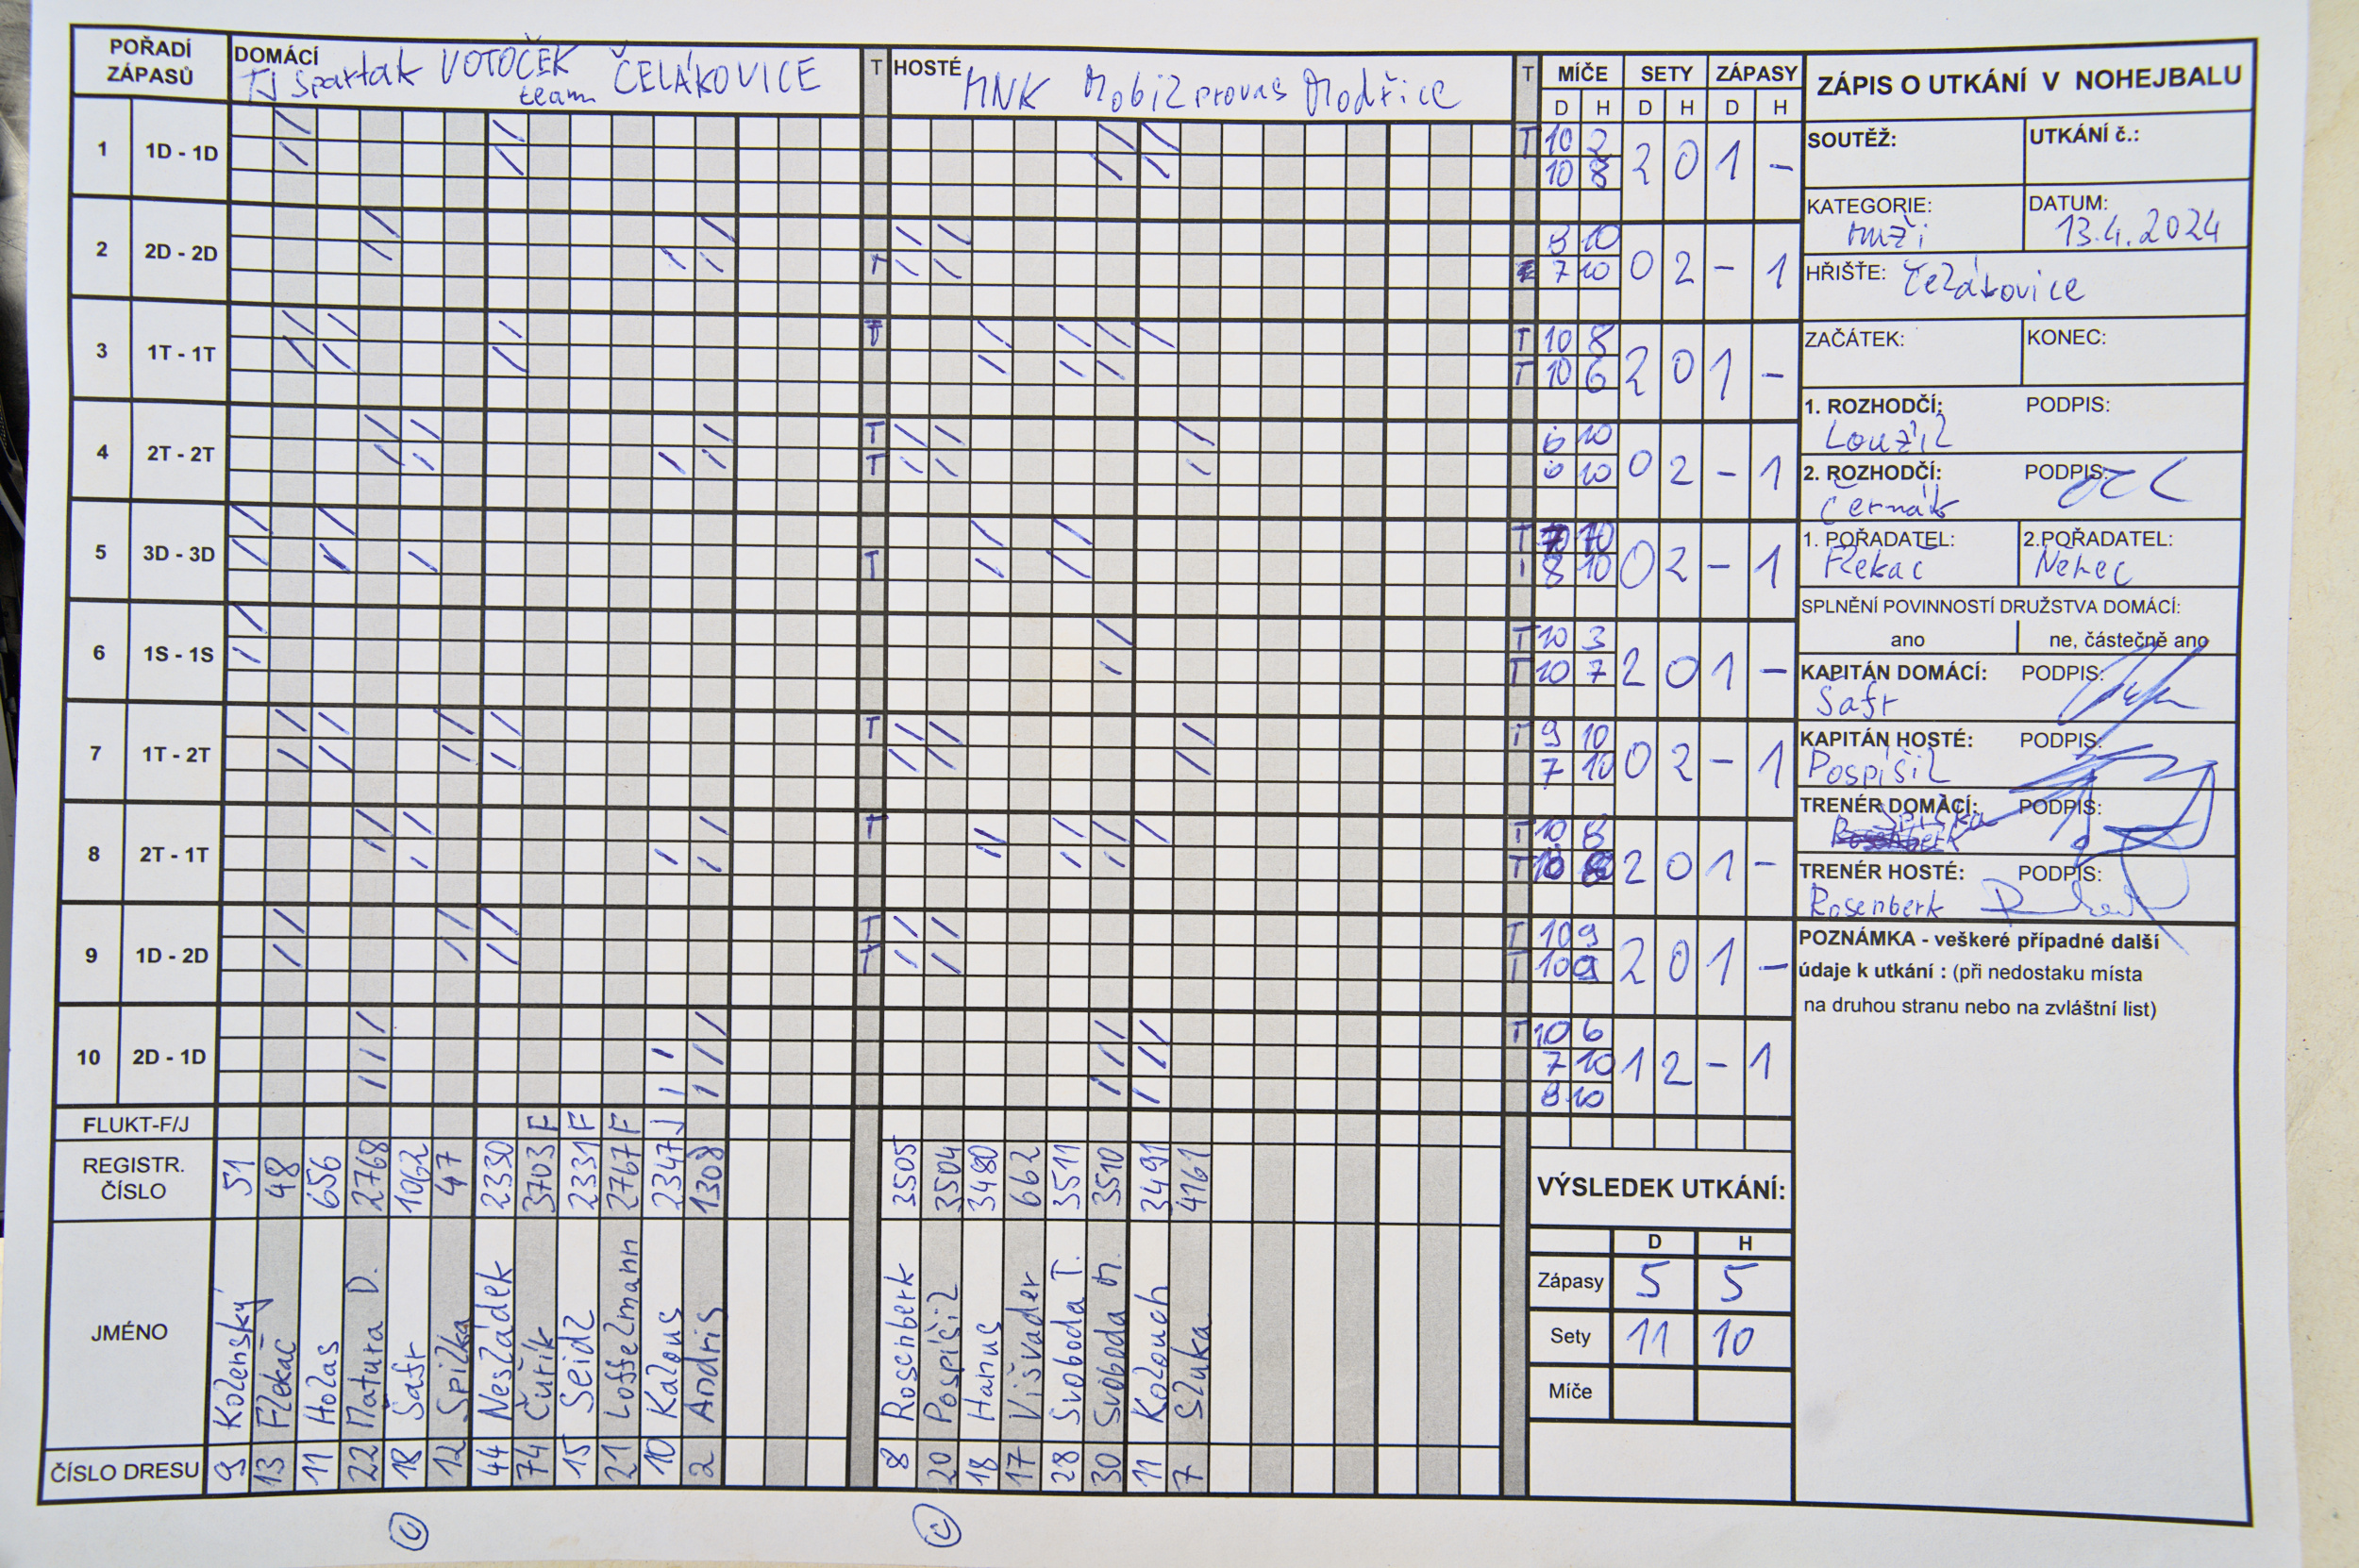 POŘADÍ ZÁPASŮ
DOMÁCÍ TJ Spartak VOTOČEK team ČELÁKOVICE
T
HOSTÉ MNK Mobilprovas Modřice
T
MÍČE SETY ZÁPASY
D H D H D H
1 1D - 1D T 10 2 2 0 1 -
10 8
2 2D - 2D 8 10 0 2 - 1
T 7 10
3 1T - 1T T T 10 8 2 0 1 -
T 10 6
4 2T - 2T T 6 10 0 2 - 1
T 6 10
5 3D - 3D T 7 10 0 2 - 1
T 8 10
6 1S - 1S T 10 3 2 0 1 -
T 10 7
7 1T - 2T T T 9 10 0 2 - 1
7 10
8 2T - 1T T T 10 8 2 0 1 -
T 10 8
9 1D - 2D T T 10 9 2 0 1 -
T T 10 9
10 2D - 1D T 10 6 1 2 - 1
7 10
8 10
FLUKT-F/J F F F J
REGISTR. ČÍSLO 51 48 656 2768 1062 47 2330 3703 2331 2767 2347 1308 3505 3504 3480 662 3511 3510 3491 4161
JMÉNO Kolenský Flekač Holas Matura D. Šafr Spilka Nesládek Čuřík Seidl Loffelmann Kalous Andris Rosenberk Pospíšil Hanus Višvader Svoboda T. Svoboda M. Kolouch Sluka
ČÍSLO DRESU 9 13 11 22 18 12 44 74 15 21 10 2 8 20 18 17 28 30 11 7
C C
VÝSLEDEK UTKÁNÍ:
D H
Zápasy 5 5
Sety 11 10
Míče
ZÁPIS O UTKÁNÍ V NOHEJBALU
SOUTĚŽ: UTKÁNÍ č.:
KATEGORIE: muži DATUM: 13.4.2024
HŘIŠTE: Čelákovice
ZAČÁTEK: KONEC:
1. ROZHODČÍ: PODPIS:
Loužil
2. ROZHODČÍ: PODPIS:
Černák
1. POŘADATEL: 2.POŘADATEL:
Flekač Němec
SPLNĚNÍ POVINNOSTÍ DRUŽSTVA DOMÁCÍ:
ano ne, částečně ano
KAPITÁN DOMÁCÍ: PODPIS:
Šafr
KAPITÁN HOSTÉ: PODPIS:
Pospíšil
TRENÉR DOMÁCÍ: PODPIS:
Spilka
TRENÉR HOSTÉ: PODPIS:
Rosenberk
POZNÁMKA - veškeré případné další
údaje k utkání : (při nedostaku místa
na druhou stranu nebo na zvláštní list)